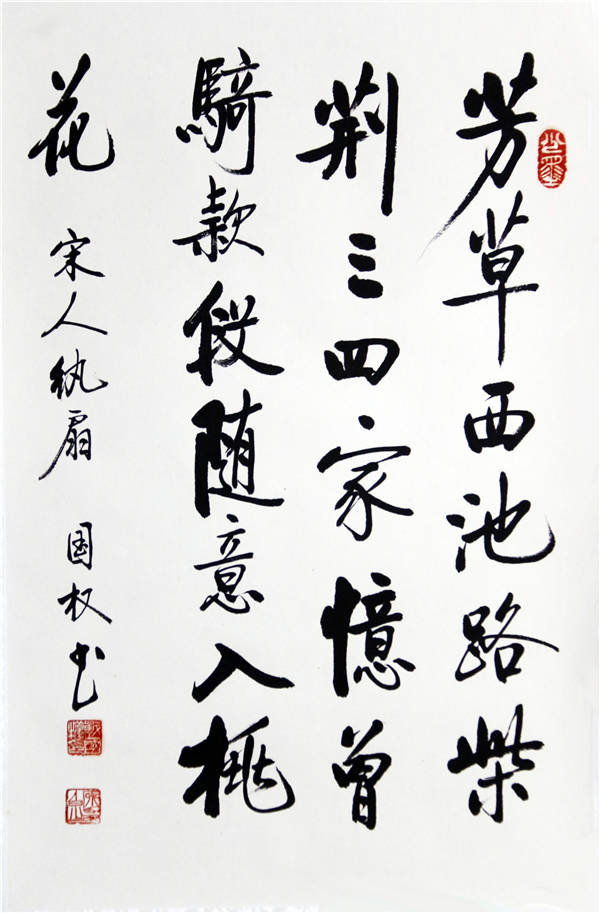 芳草西池路柴
荆三四家憶曾
騎款段随意入桃
花
宋人纨扇 国权书